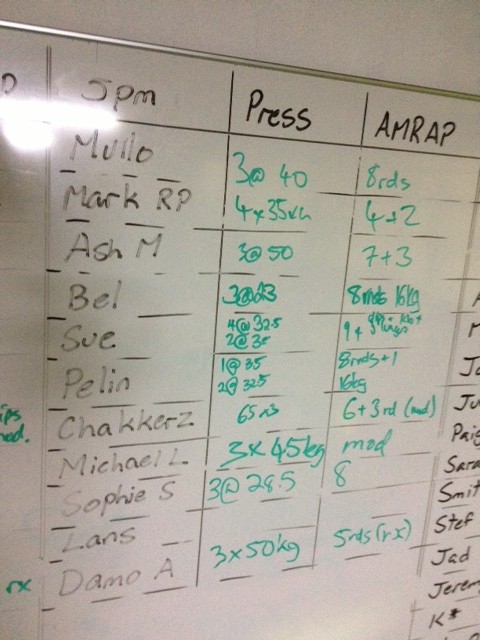 5pm Press AMRAP
Mullo 3@ 40 8rds
Mark RP 4x35kg 4+2
Ash M 3@ 50 7+3
Bel 3@23 8rnds 16kg
Sue 4@ 32.5 2@ 35 9+
Pelin 1@ 35 2@ 32.5 8rnds+1 16kg
Chakkerz 65 6+3rd (mod)
Michael L 3x45kg mod
Sophie S 3@ 28.5 8
Lans
Damo A 3x50kg 5rds (rx)
ips
mod.
rx
Paig
Sara
Smit
Stef
Jad
Jerem
K*